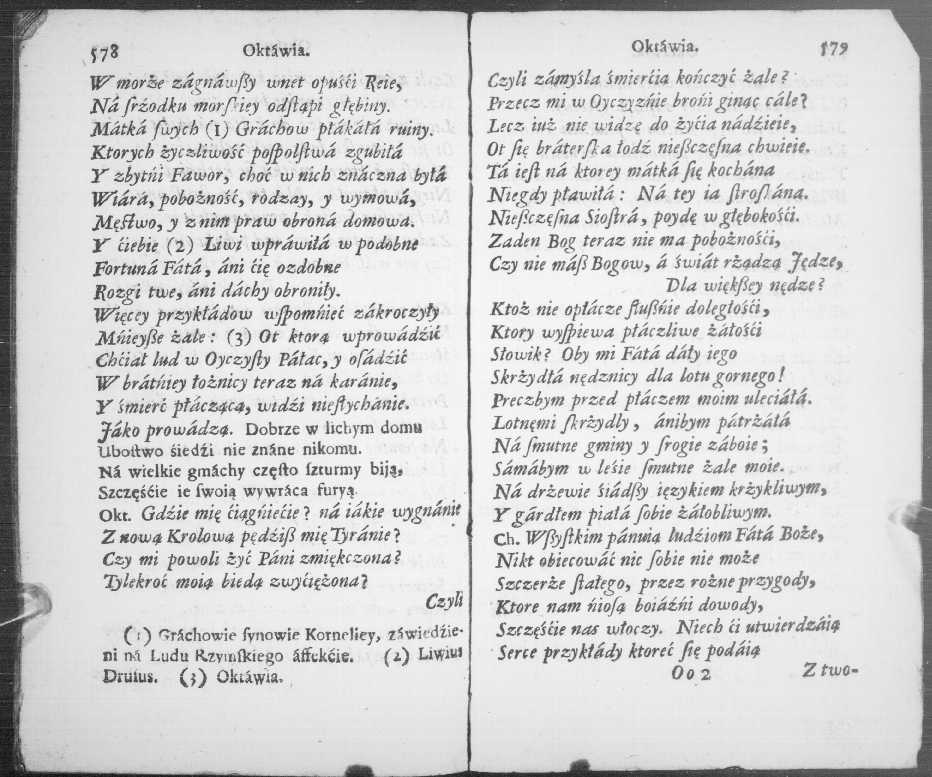 578 Oktáwia.
W morże zágnáwſßy wnet opuśći Reie,
Ná ſrżodku morſkiey odſtąpi głębiny.
Mátká ſwych (1) Gráchow płákáłá ruiny.
Ktorych życzliwość poſpolſtwá zgubiłá
Y zbytńi Fawor, choć w nich znáczna byłá
Wiárá, pobożność, rodzay, y wymową,
Męſtwo, y z nim praw obroná domowa.
Y ćiebie (2) Liwi wpráwiłá w podobne
Fortuná Fátá, áni ćię ozdobne
Rozgi twe, áni dáchy obroniły.
Więcey przykłádow wſpomńieć zákroczyły
Mńieyße żale: (3) Ot ktorą wprowádźić
Chćiał lud w Oyczyſty Páłac, y oſádźić
W brátńiey łożnicy teraz ná karánie,
Y śmierć płáczącą, widźi nieſłychánie.
Jáko prowádzą. Dobrze w lichym domu
Uboſtwo śiedźi nie znáne nikomu.
Ná wielkie gmáchy częſto ſzturmy biją,
Szczęśćie ie ſwoią wywráca furyą.
Okt. Gdźie mię ćiągńiećie? ná iákie wygnánie
Z nową Krolową pędźiß mię Tyránie?
Czy mi powoli żyć Páni zmiękczona?
Tylekroć moią biedą zwyćiężona?
Czyli
(1) Gráchowie ſynowie Korneliey, záwiedźie-
ni ná Ludu Rzymſkiego áffekćie. (2) Liwius
Druſus. (3) Oktáwia.
Oktáwia. 579
Czyli zámyśla śmierćią kończyć żale?
Przecz mi w Oyczyźńie brońi ginąc cále?
Lecz iuż nie widzę do żyćia nádźieie,
Ot ſię bráterſka łodź nießczęſna chwieie.
Tá ieſt ná ktorey mátká ſię kochána
Niegdy pławiłá: Ná tey ia ſtroſkána.
Nießczęſna Sioſtrá, poydę w głębokośći.
Zaden Bog teraz nie ma pobożnośći,
Czy nie máß Bogow, á świát rżądzą Jędze,
Dla więkſßey nędze?
Ktoż nie opłácze ſłußńie doległośći,
Ktory wyſpiewa płáczliwe żáłośći
Słowik? Oby mi Fátá dáły iego
Skrżydłá nędznicy dla lotu gornego!
Preczbym przed płáczem moim uleciáłá.
Lotnęmi ſkrżydły, ánibym pátrżáłá
Ná ſmutne gminy y ſrogie záboie;
Sámábym w leśie ſmutne żale moie.
Ná drżewie śiádſßy ięzykiem krżykliwym,
Y gárdłem piałá ſobie żáłobliwym.
Ch. Wſßyſtkim pánuią ludźiom Fátá Boże,
Nikt obiecowáć nic ſobie nie może
Szczerże ſtałego, przez rożne przygody,
Ktore nam ńioſą boiáźńi dowody,
Szczęśćie nas włoczy. Niech ći utwierdzáią
Serce przykłády ktoreć ſię podáią
Oo 2 Z two-